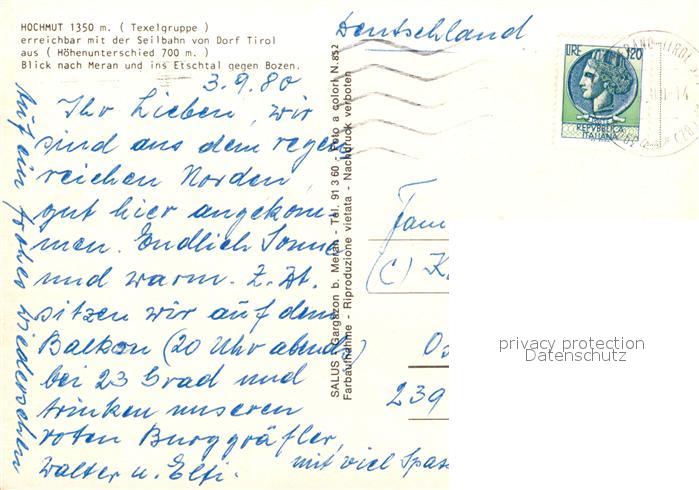 HOCHMUT 1350 m. ( Texelgruppe )
erreichbar mit der Seilbahn von Dorf Tirol
aus ( Höhenunterschied 700 m. )
Blick nach Meran und ins Etschtal gegen Bozen.
3.9.80
Ihr Lieben, wir
sind aus dem regen
reichen Norden
gut hier angekom
men. Endlich Sonne
und warm. Z. Zt.
sitzen wir auf dem
Balkon (20 Uhr abends)
bei 23 Grad und
trinken unseren
roten Burggräfler,
mit viel Spass
Walter u. Elfi.
Auf ein frohes Wiedersehen
SALUS - Gargazon b. Meran - Tel. 91 3 60 - Foto a colori N. 852
Farbaufnahme - Riproduzione vietata - Nachdruck verboten
Deutschland
LIRE 120
REPVBBLICA
ITALIANA
Fam
(C) K
Os
239
privacy protection
Datenschutz